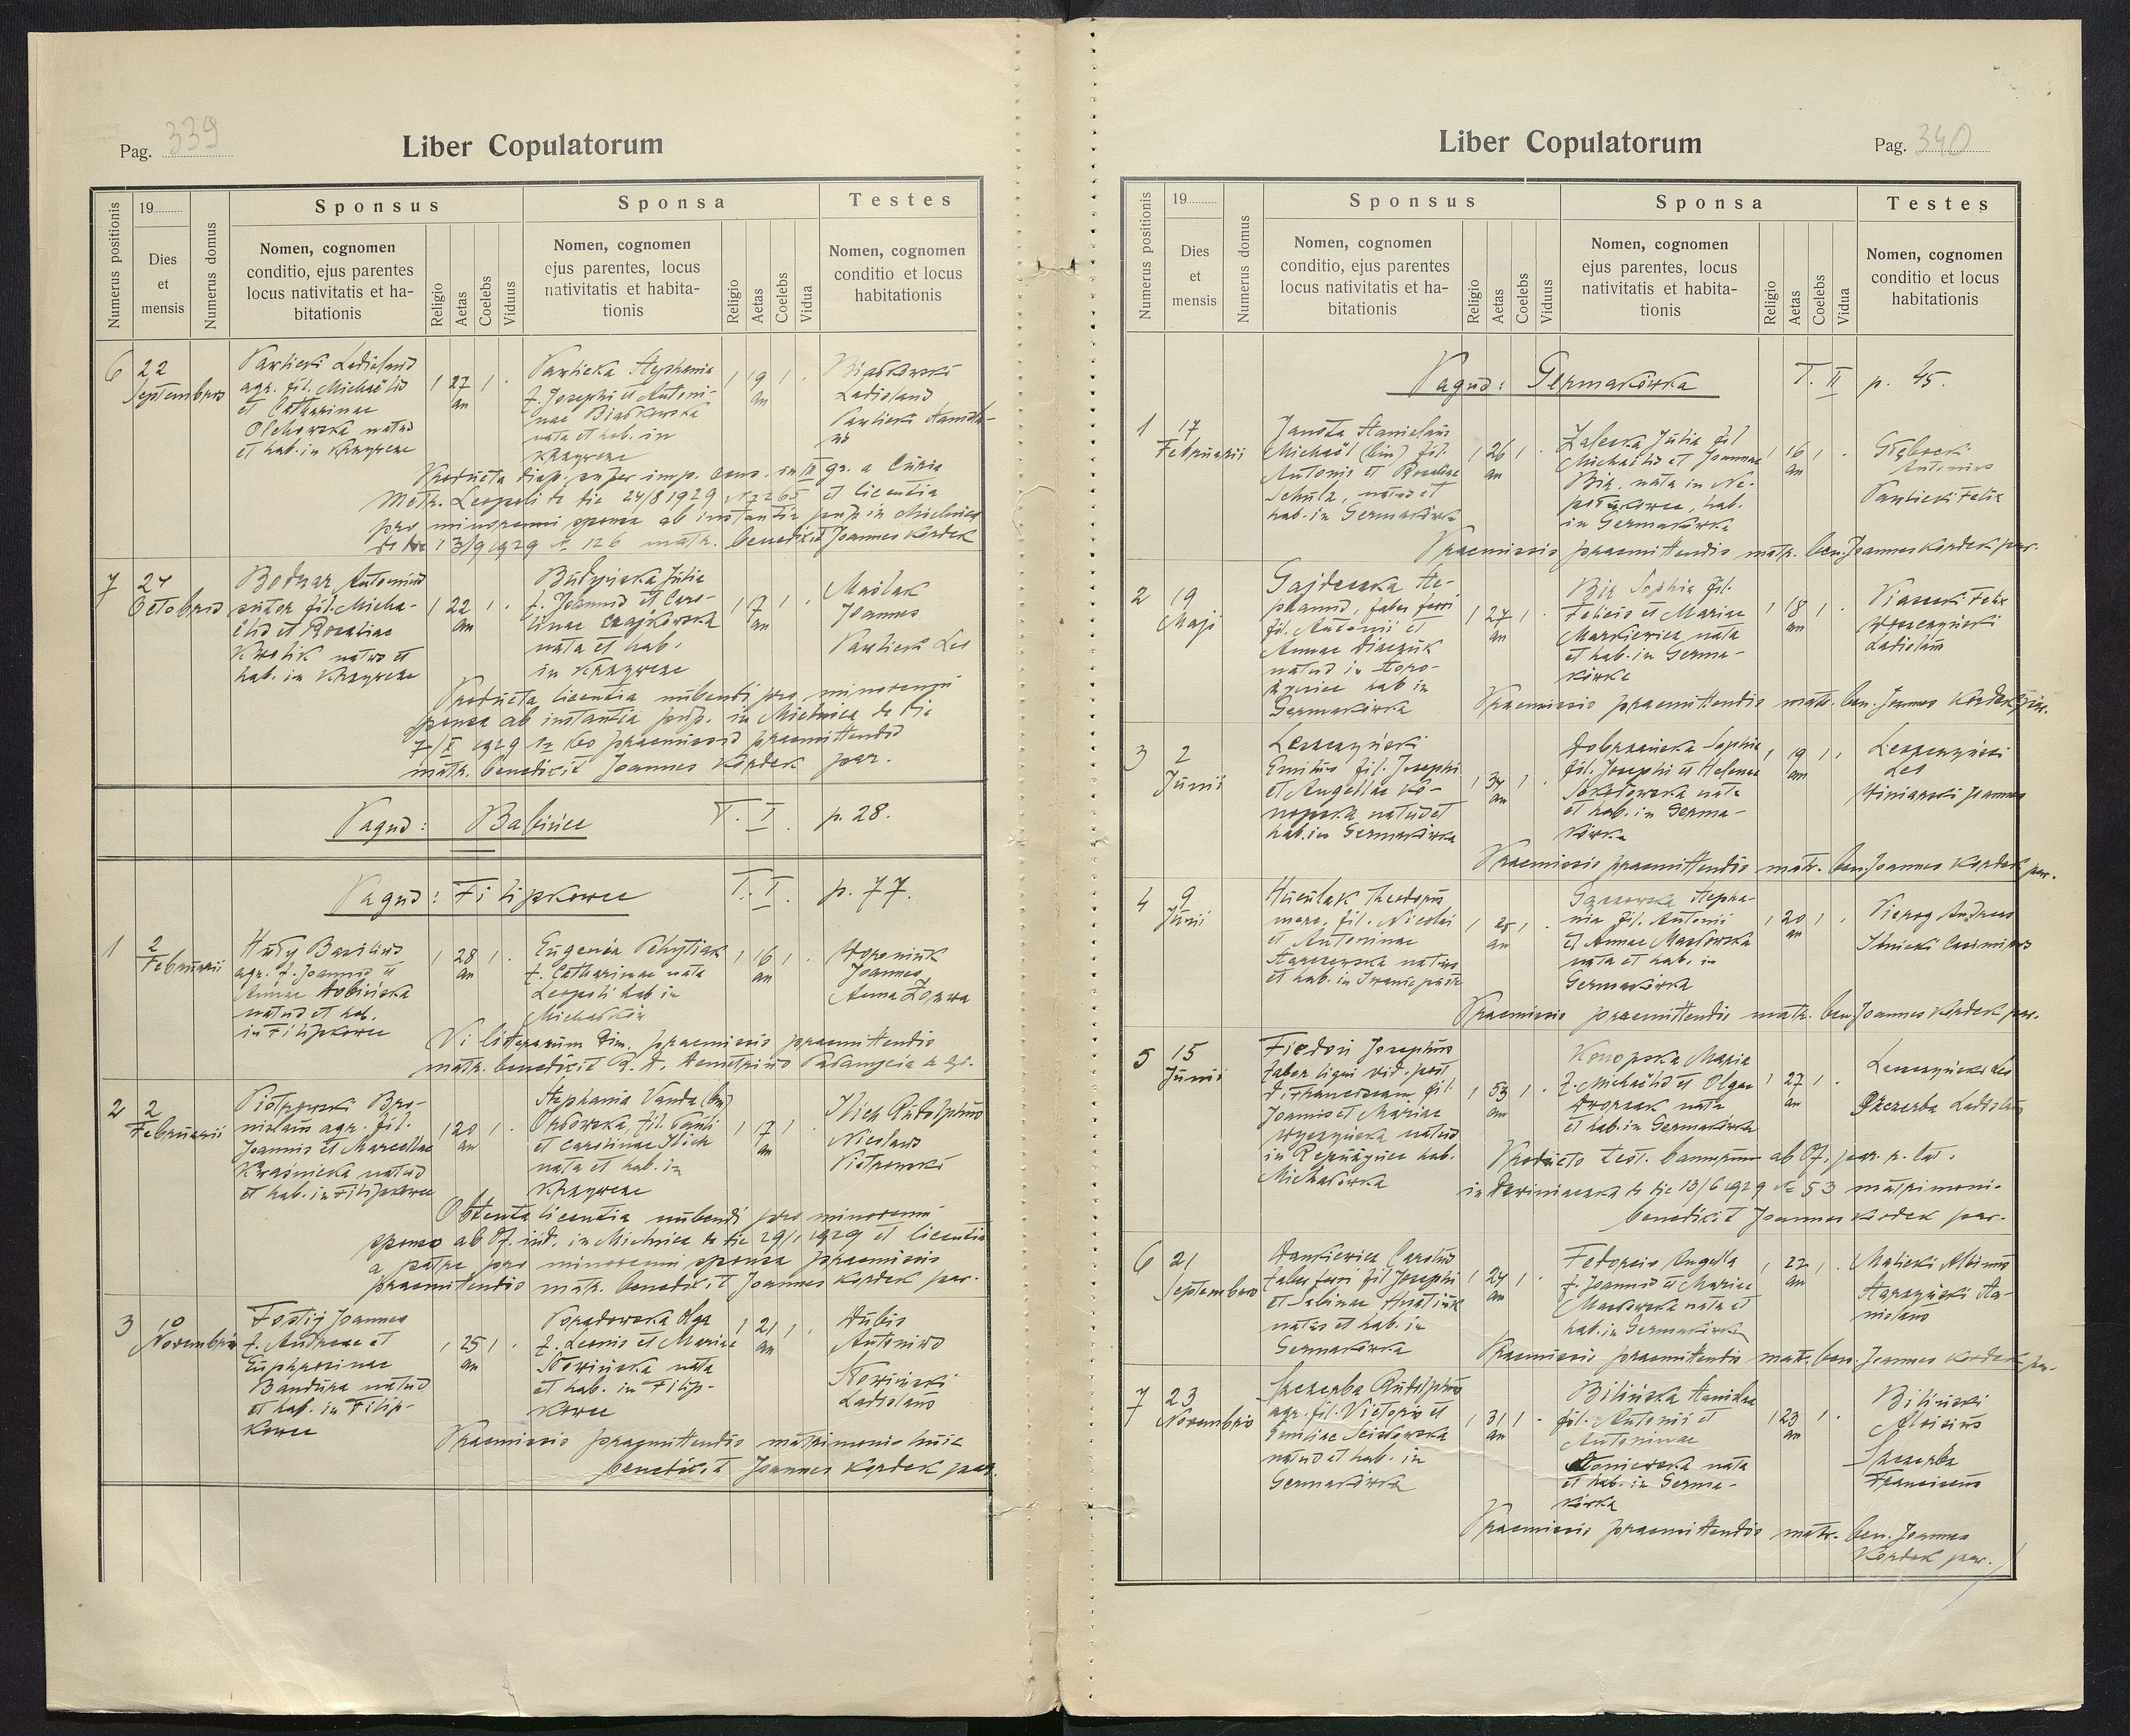 Pag. 339
Liber Copulatorum
Numerus positionis
19
Dies
et
mensis
Numerus domus
Sponsus
Nomen, cognomen
conditio, ejus parentes
locus nativitatis et ha-
bitationis
Religio
Aetas
Coelebs
Viduus
Sponsa
Nomen, cognomen
ejus parentes, locus
nativitatis et habita-
tionis
Religio
Aetas
Coelebs
Vidua
Testes
Nomen, cognomen
conditio et locus
habitationis
6
22
Septembris
agr. fil. Michaëlis
et Catharinae
Olchowska natus
et hab. in Krzywcze
27
an
Pawlicka Stephania
f. Josephi et Antoni-
nae Białkowska
nata et hab. in
Krzywcze
19
an
Białkowski
Ladislaus
Pawlicki Stanisla-
us
Producta disp. super imp. cons. in III gr. a Curia
Metr. Leopoli de die 24/8 1929 et licentia
pro minorenni sponsa ab instantia pup. in Mielnica
13/9 1929 N 126 matr. benedixit Joannes Kordek
7
24
Octobris
Bodnar Antonius
sutor fil. Micha-
ëlis et Rosaliae
natus et
hab. in Krzywcze
22
an
Julia
f. Joannis et Caro-
linae Czajkowska
nata et hab.
in Krzywcze
17
an
Maślak
Joannes
Pawlicki Leo
Producta licentia nubendi pro minorenni
sponsa ab instantia pup. in Mielnica de die
7/X 1929 N 160 praemissis praemittendis
matr. benedixit Joannes Kordek par.
Pagus: Babińce T. I. p. 28.
Pagus: Filipkowce T. I. p. 77.
1
2
Februarii
Hudy Basilius
agr. f. Joannis et
Annae
natus et hab.
in Filipkowce
28
an
Eugenia
f. Catharinae nata
Leopoli hab in
Michałków
16
an
Joannes
Anna
Vi litterarum dim. praemissis praemittendis
matr. benedixit R. D. Demetrius
2
2
Februarii
Piotrowski Bro-
nislaus agr. fil.
Joannis et Marcellae
Kraśnicka natus
et hab. in Filipkowce
20
an
Stephania Vanda (bin)
Orłowska, fil. Pauli
et Carolinae Ilich
nata et hab. in
Krzywcze
17
an
Ilich Rudolphus
Nicolaus
Piotrowski
Obtenta licentia nubendi pro minorenni
sponso ab Of. iud. in Mielnica de die 29/1 1929 et licentia
a patre pro minorenni sponsa praemissis
praemittendis matr. benedixit Joannes Kordek par.
3
10
Novembris
Fostij Joannes
f. Andreae et
Euphrosinae
Bandura natus
et hab. in Filip-
kowce
25
an
Olga
f. Leonis et Mariae
Nowińska nata
et hab. in Filip-
kowce
21
an
Dubis
Antonius
Nowiński
Ladislaus
Praemissis praemittendis matrimonio huic
benedixit Joannes Kordek par.
Liber Copulatorum
Pag. 340
Numerus positionis
19
Dies
et
mensis
Numerus domus
Sponsus
Nomen, cognomen
conditio, ejus parentes
locus nativitatis et ha-
bitationis
Religio
Aetas
Coelebs
Viduus
Sponsa
Nomen, cognomen
ejus parentes, locus
nativitatis et habita-
tionis
Religio
Aetas
Coelebs
Vidua
Testes
Nomen, cognomen
conditio et locus
habitationis
Pagus: Germakówka T. II p. 45.
1
17
Februarii
Janota Stanislaus
Michaël (bin) fil.
Antonii et Rosaliae
Schulz, natus et
hab. in Germakówka
26
an
Zaleska Julia fil
Michaëlis et Joannae
Bir, nata in Ne-
hab.
in Germakówka
16
an
Głębocki
Antonius
Pawlicki Felix
Praemissis praemittendis matr. ben. Joannes Kordek par.
2
19
Maji
Gajdeczka Ste-
phanus, faber ferri
fil. Antonii et
Annae
natus in
hab in
Germakówka
27
an
Bir Sophia fil.
Felicis et Mariae
Markiewicz nata
et hab. in Germa-
kówka
18
an
Piasecki Felix
Ladislaus
Praemissis praemittendis matr. ben. Joannes Kordek par.
3
2
Junii
Leszczyński
Emilius fil. Josephi
et Angellae Ko-
nopska natus et
hab. in Germakówka
34
an
Dobrzańska Sophia
fil. Josephi et Helenae
Sokołowska nata
et hab. in Germa-
kówka
19
an
Leszczyński
Leo
Winiarski Joannes
Praemissis praemittendis matr. ben. Joannes Kordek par.
4
9
Junii
Theodorus
fil. Nicolai
et Antoninae
natus
et hab. in Iwanie puste
25
an
Stepha-
nia fil. Antonii
et Annae Masłowska
nata et hab. in
Germakówka
20
an
Pierog Andreas
Casimirus
Praemissis praemittendis matr. ben. Joannes Kordek par.
5
15
Junii
Fiedoń Josephus
faber ligni vid. post
d. Franciscam fil.
Joannis et Mariae
Wyczyńska natus
in hab.
Michałówka
53
an
Konopska Maria
f. Michaëlis et Olgae
Dworzak nata
et hab. in Germakówka
27
an
Leszczyński Leo
Szczerba Ladislaus
Producto test. bannorum ab Of. par. r. lat.
in de die 13/6 1929 N 53 matrimoni-
benedixit Joannes Kordek par.
6
21
Septembris
Dankiewicz Carolus
faber ferri fil Josephi
et Sabinae
natus et hab. in
Germakówka
24
an
Angella
f. Joannis et Mariae
Masłowska nata et
hab. in Germakówka
22
an
Malicki Albinus
Starzyński Sta-
nislaus
Praemissis praemittendis matr. ben. Joannes Kordek par.
7
23
Novembris
Szczerba Rudolphus
agr. fil. Victoris et
Emiliae
natus et hab. in
Germakówka
31
an
Bilińska Stanislaa
fil. Antonii et
Antoninae
Słoniewska nata
et hab. in Germa-
kówka
23
an
Biliński
Aloisius
Szczerba
Franciscus
Praemissis praemittendis matr. ben. Joannes
Kordek par.